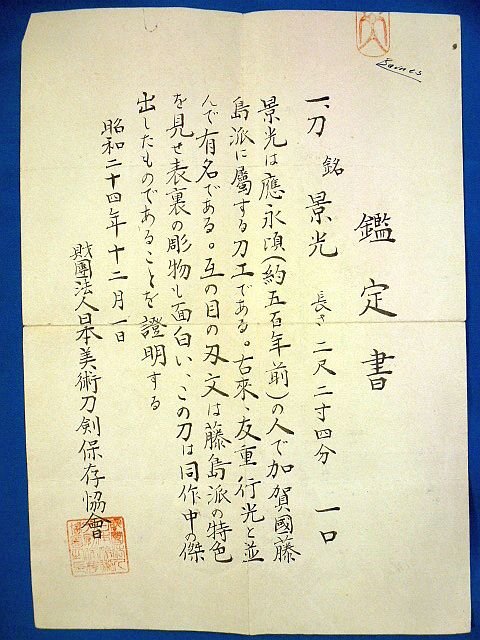 鑑定書
一、刀 銘 景光 長さ二尺二寸四分 一口
景光は應永頃(約五百年前)の人で加賀國藤
島派に屬する刀工である。古來、友重行光と並
んで有名である。互の目の刃文は藤島派の特色
を見せ表裏の彫物も面白い、この刀は同作中の傑
出したものであることを證明する
昭和二十四年十二月一日
財團法人日本美術刀劍保存協會
Gaines